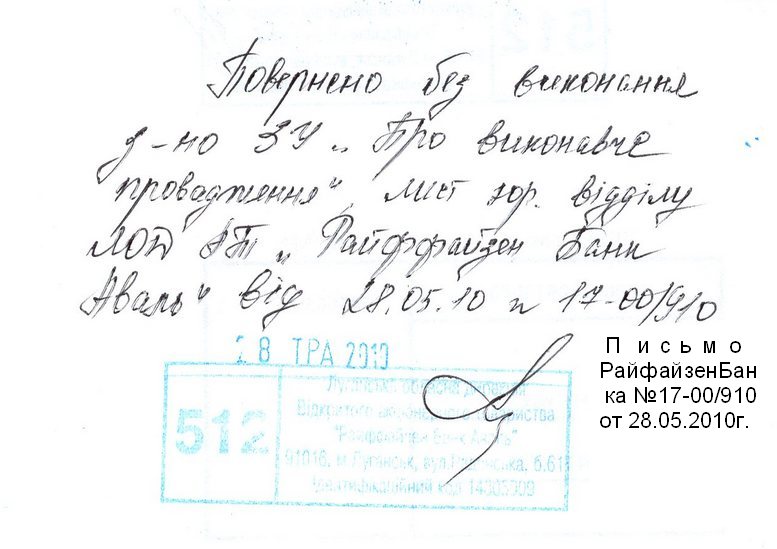 Повернено без виконання
з-но ЗУ „Про виконавче
провадження", лист юр. відділу
ЛОД АТ „Райффайзен Банк
Аваль" від 28.05.10 н 17-00/910
28 ТРА 2010
Луганська обласна дирекція
512
Відкритого акціонерного товариства
"Райффайзен Банк Аваль"
91016, м.Луганськ, вул.
Ідентифікаційний код 14305909
Письмо
РайфайзенБан
ка №17-00/910
от 28.05.2010г.